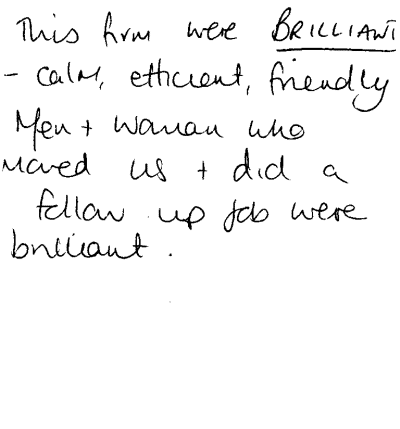 This firm were BRILLIANT
- calm, efficient, friendly
Men + woman who
moved us + did a
follow up job were
brilliant.